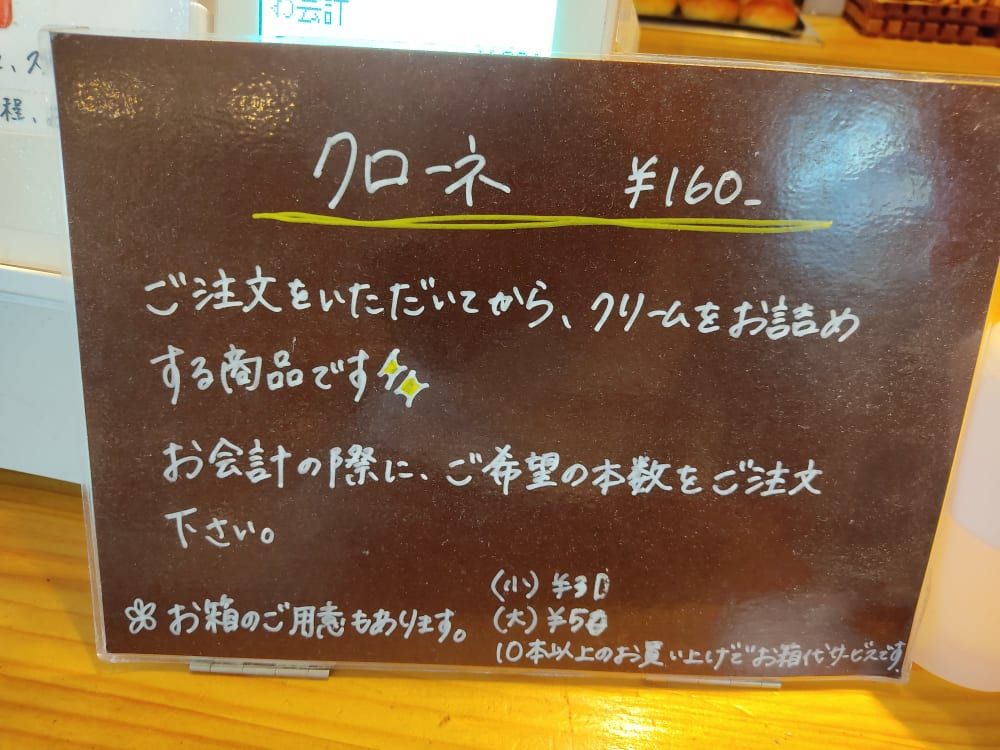 お会計
、ス
程、
クローネ ¥160-
ご注文をいただいてから、クリームをお詰め
する商品です
お会計の際に、ご希望の本数をご注文
下さい。
お箱のご用意もあります。
(小) ¥30
(大) ¥50
10本以上のお買い上げでお箱代サービスです